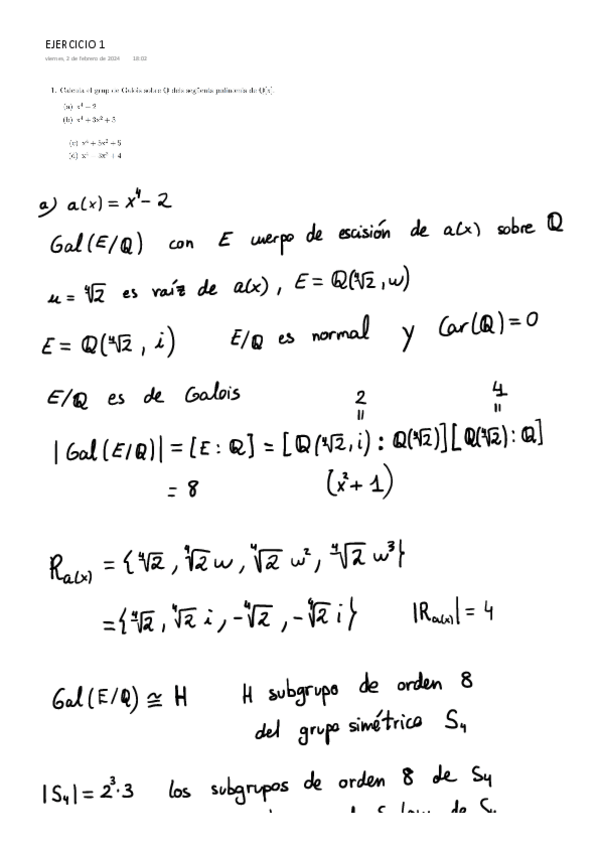 EJERCICIO 1
viernes, 2 de febrero de 2024 18:02
1. Calcula el grupo de Galois sobre Q
(a) x⁴ − 2
(b)
(c)
(d)
a) a(x) = x⁴ - 2
Gal(E/Q) con E cuerpo de escisión de a(x) sobre Q
u = ∜2 es raíz de a(x), E = Q(∜2, w)
E = Q(∜2, i) E/Q es normal y Car(Q) = 0
E/Q es de Galois
2 4
|Gal(E/Q)| = [E : Q] = [Q(∜2, i) : Q(∜2)][Q(∜2) : Q]
= 8 (x² + 1)
R_{a(x)} = {∜2, ∜2 w, ∜2 w², ∜2 w³}
= {∜2, ∜2 i, -∜2, -∜2 i} |R_{a(x)}| = 4
Gal(E/Q) ≅ H H subgrupo de orden 8
del grupo simétrico S₄
|S₄| = 2³·3 los subgrupos de orden 8 de S₄